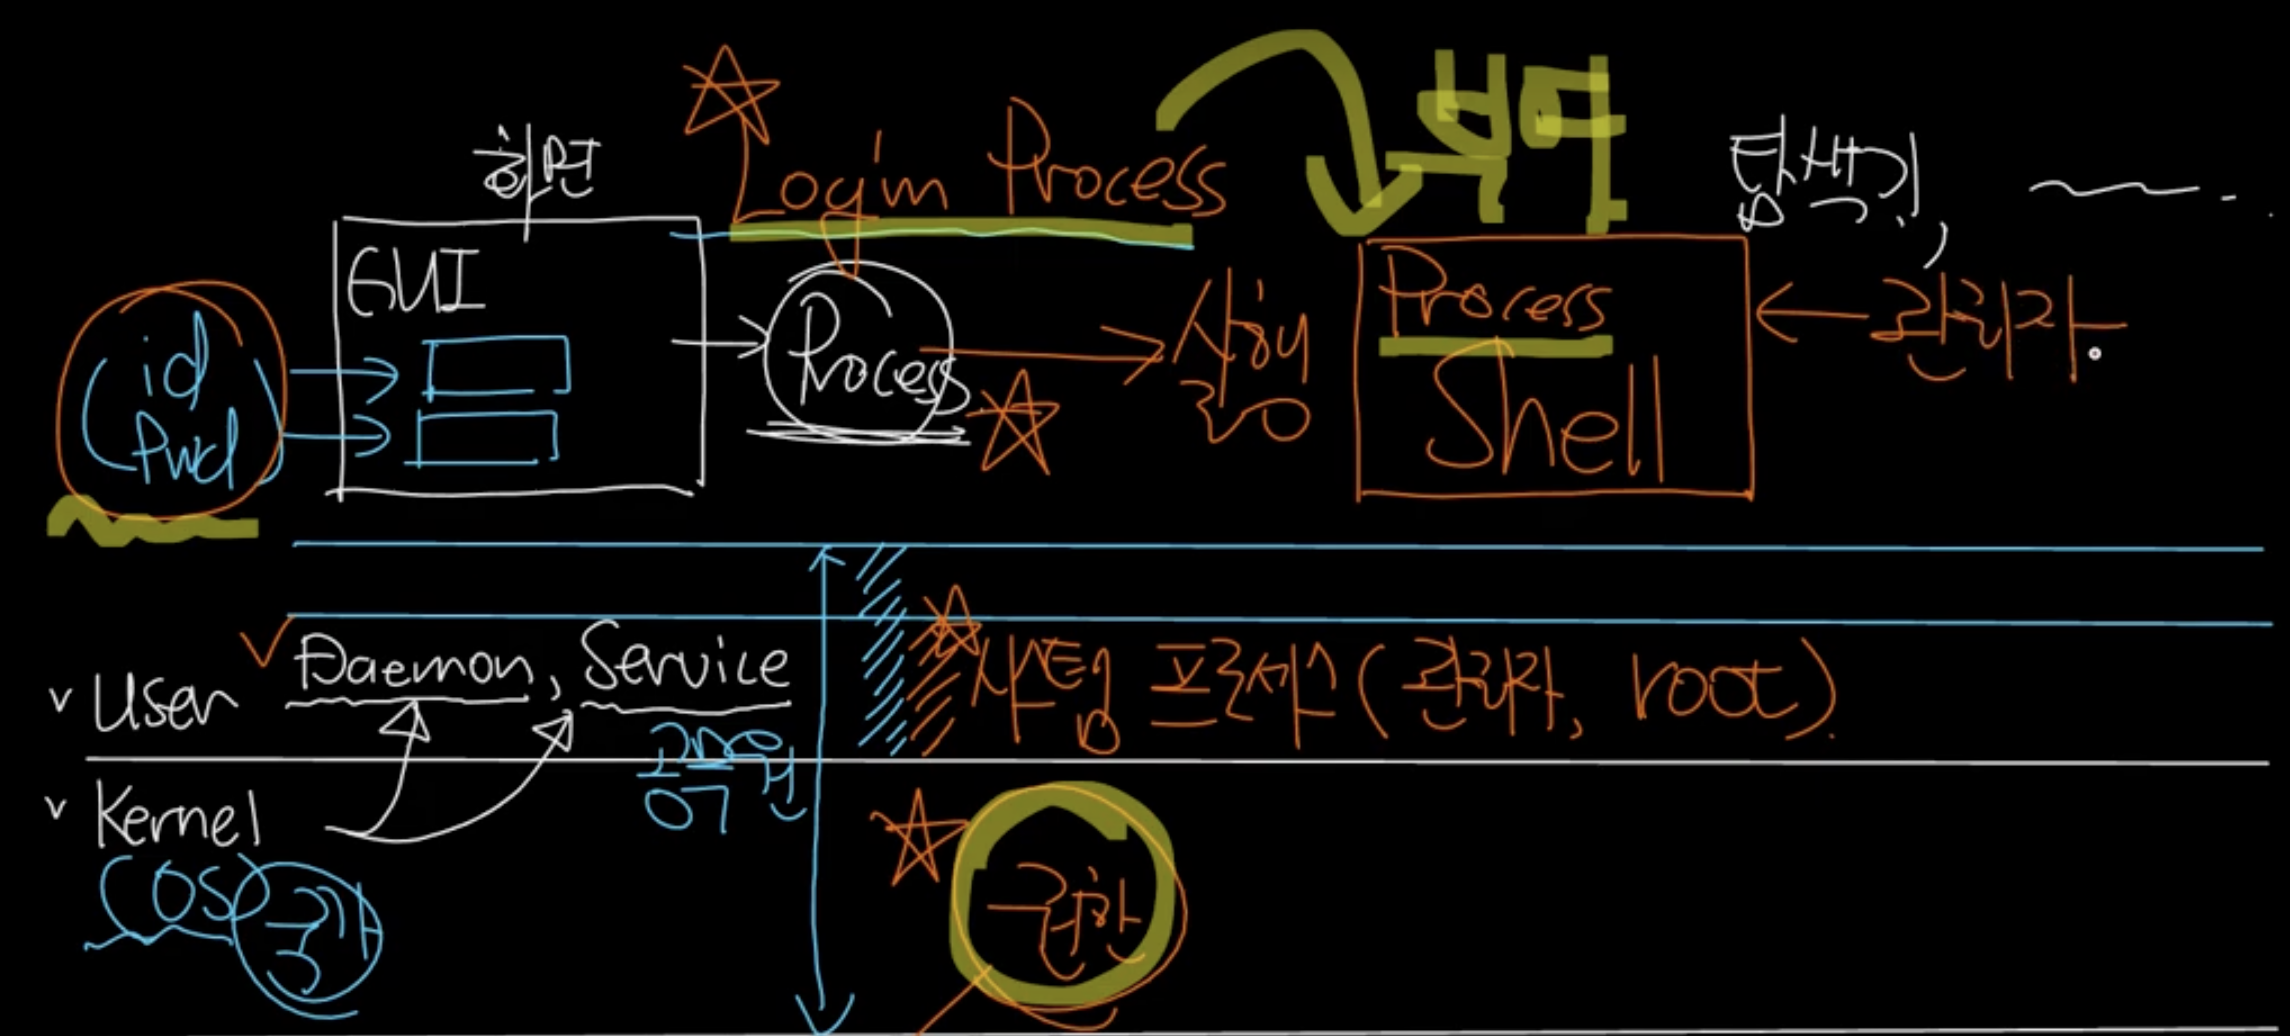 화면
Login Process
부여
탐색기,
GUI
id
Pwd
Process
실행
Process
Shell
관리자
User
Daemon, Service
시스템 프로세스(관리자, root).
Kernel
COS)
국가
권한